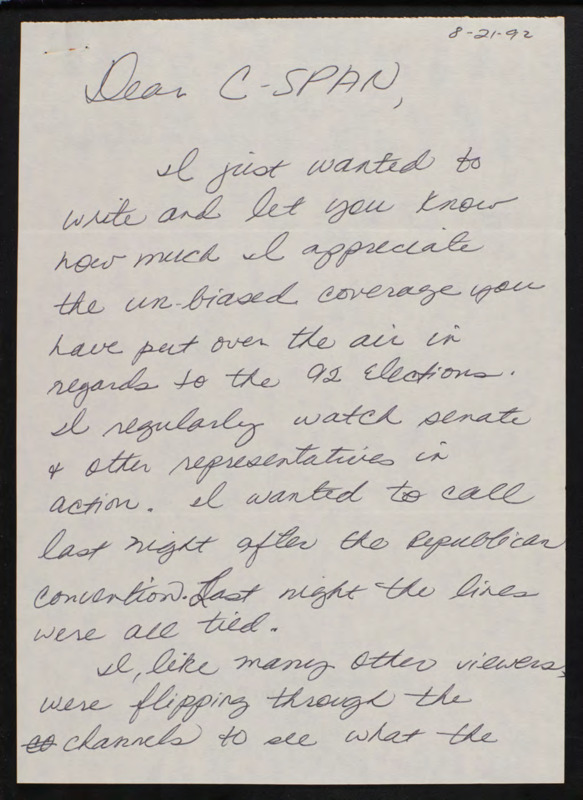 8-21-92
Dear C-SPAN,
I just wanted to
write and let you know
how much I appreciate
the un-biased coverage you
have put over the air in
regards to the 92 Elections.
I regularly watch senate
& other representatives in
action. I wanted to call
last night after the Republican
convention. Last night the lines
were all tied.
I, like many other viewers,
were flipping through the
channels to see what the